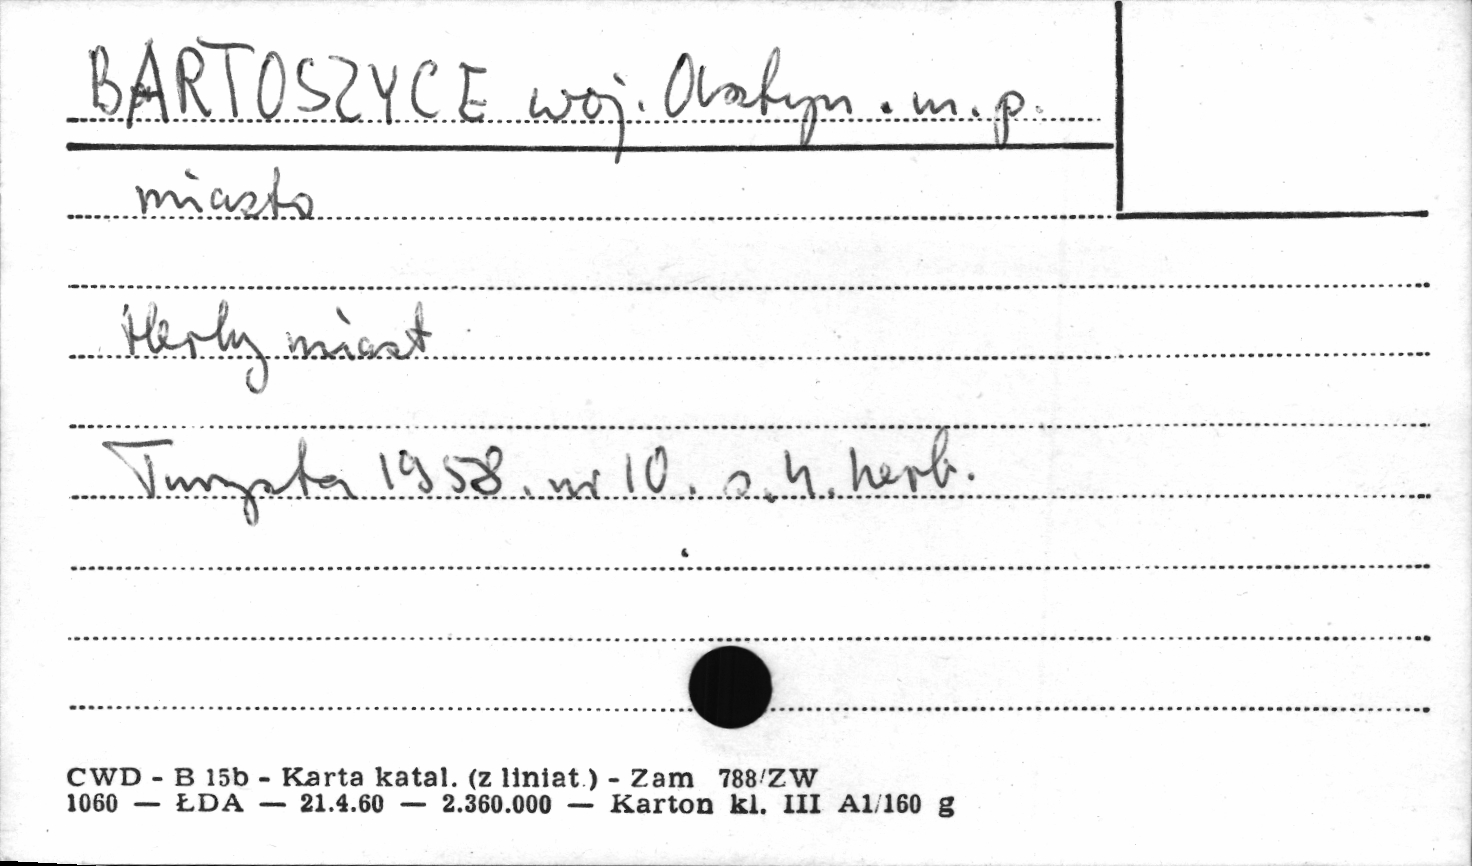 BARTOSZYCE woj. Olsztyn. m. p.
miasto
Herby miast
Turysta 1958. nr 10. s. 4. herb.
CWD - B 15b - Karta katal. (z liniat.) - Zam 788/ZW
1060 — ŁDA — 21.4.60 — 2.360.000 — Karton kl. III A1/160 g